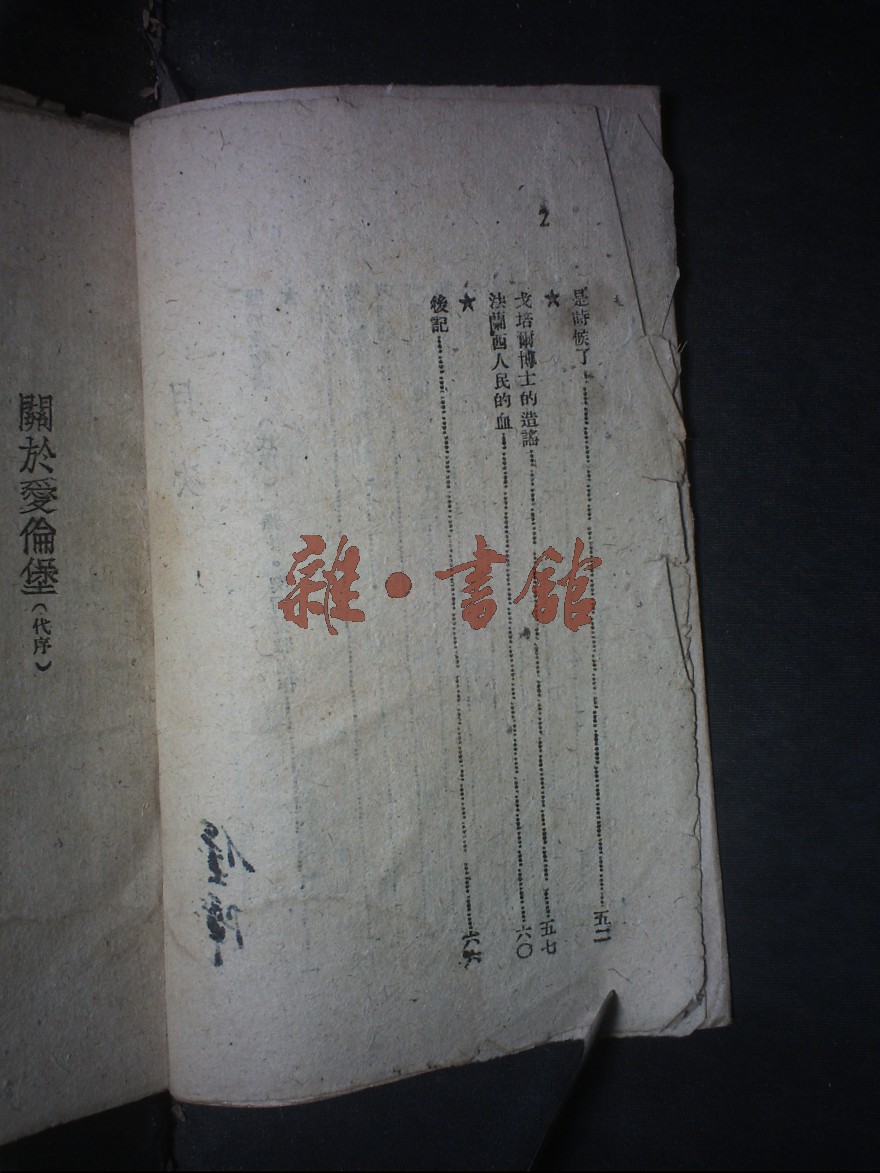 2
是時候了……五二
★
戈培爾博士的造謠……五七
法蘭西人民的血……六〇
★
後記……六六
關於愛倫堡(代序)
雜·書館